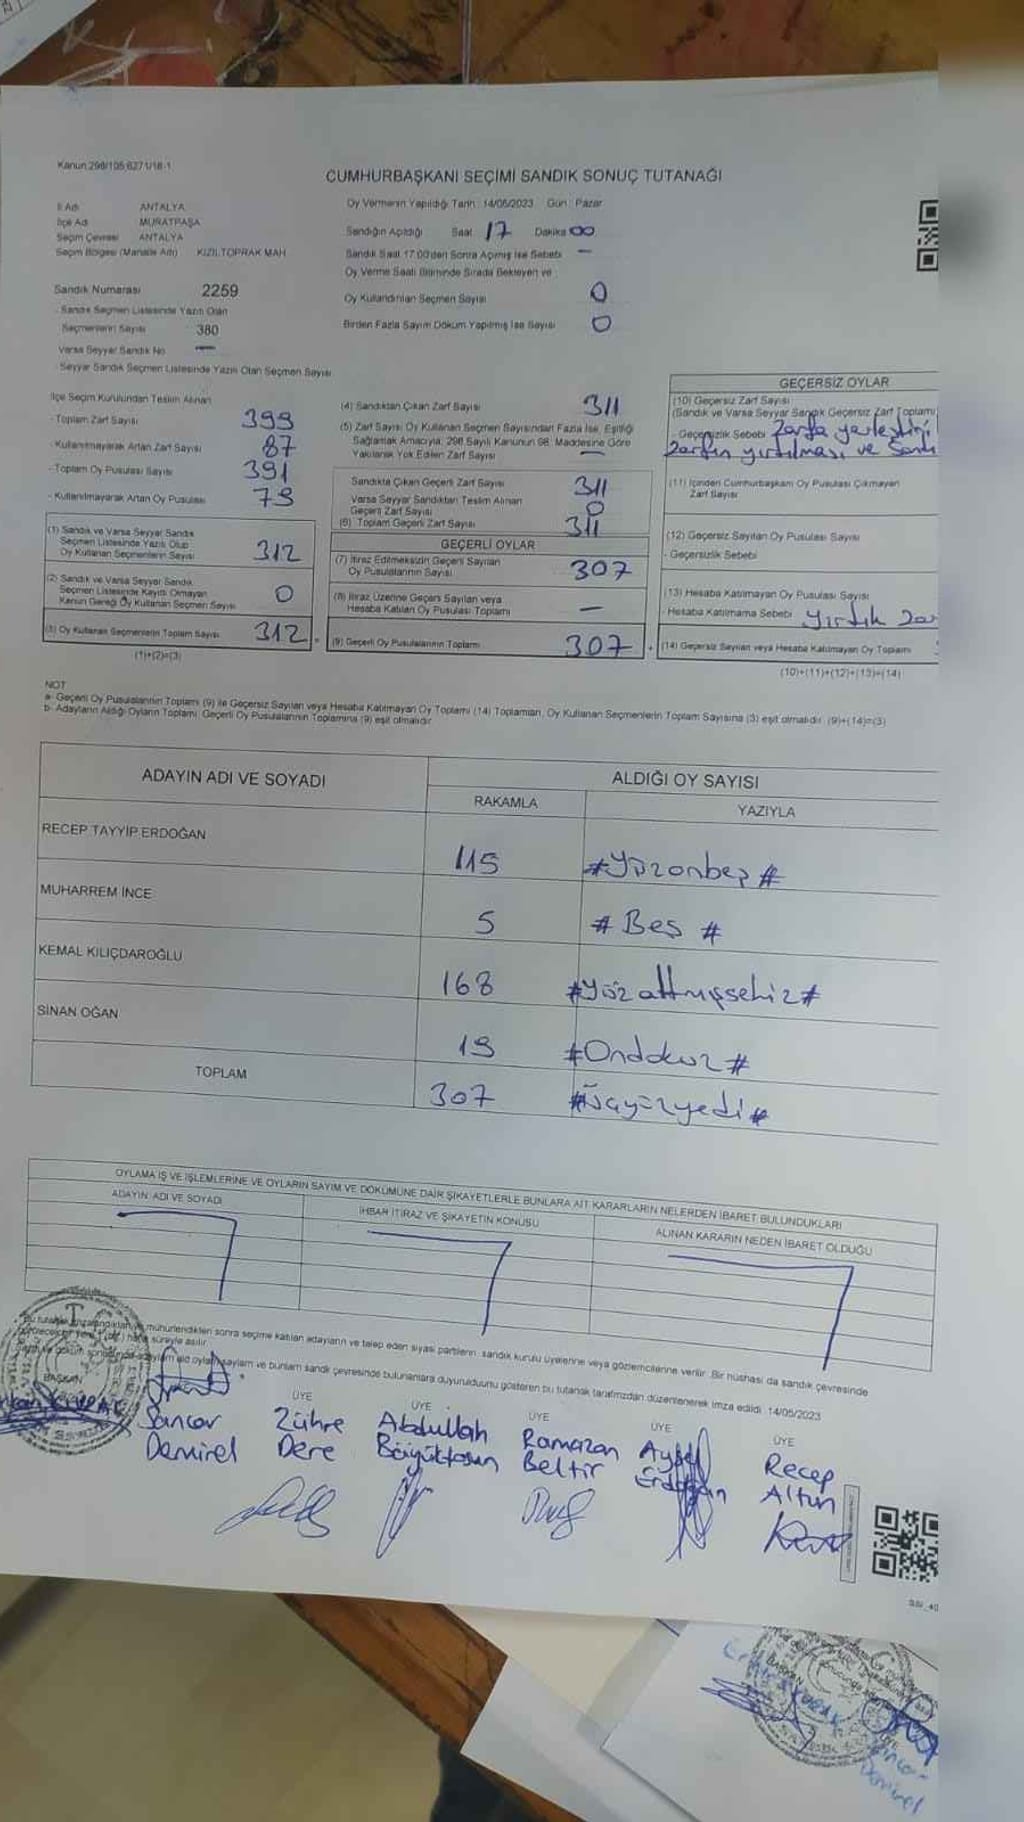 Kanun:298/105;6271/18-1
CUMHURBAŞKANI SEÇİMİ SANDIK SONUÇ TUTANAĞI
İl Adı ANTALYA
İlçe Adı MURATPAŞA
Seçim Çevresi ANTALYA
Seçim Bölgesi (Mahalle Adı) KIZILTOPRAK MAH
Oy Vermenin Yapıldığı Tarih: 14/05/2023 Gün: Pazar
Sandığın Açıldığı Saat 17 Dakika 00
Sandık Saat 17:00'den Sonra Açılmış İse Sebebi —
Oy Verme Saati Bitiminde Sırada Bekleyen ve
Oy Kullandırılan Seçmen Sayısı 0
Birden Fazla Sayım Döküm Yapılmış İse Sayısı 0
Sandık Numarası 2259
- Sandık Seçmen Listesinde Yazılı Olan
Seçmenlerin Sayısı 380
Varsa Seyyar Sandık No —
- Seyyar Sandık Seçmen Listesinde Yazılı Olan Seçmen Sayısı
İlçe Seçim Kurulundan Teslim Alınan
- Toplam Zarf Sayısı 399
- Kullanılmayarak Artan Zarf Sayısı 87
- Toplam Oy Pusulası Sayısı 391
- Kullanılmayarak Artan Oy Pusulası 79
(1) Sandık ve Varsa Seyyar Sandık
Seçmen Listesinde Yazılı Olup
Oy Kullanan Seçmenlerin Sayısı 312
(2) Sandık ve Varsa Seyyar Sandık
Seçmen Listesinde Kayıtlı Olmayan
Kanun Gereği Oy Kullanan Seçmen Sayısı 0
(3) Oy Kullanan Seçmenlerin Toplam Sayısı 312
(1)+(2)=(3)
(4) Sandıktan Çıkan Zarf Sayısı 311
(5) Zarf Sayısı Oy Kullanan Seçmen Sayısından Fazla İse, Eşitliği
Sağlamak Amacıyla, 298 Sayılı Kanunun 98. Maddesine Göre
Yakılarak Yok Edilen Zarf Sayısı —
Sandıkta Çıkan Geçerli Zarf Sayısı 311
Varsa Seyyar Sandıktan Teslim Alınan
Geçerli Zarf Sayısı 0
(6) Toplam Geçerli Zarf Sayısı 311
GEÇERLİ OYLAR
(7) İtiraz Edilmeksizin Geçerli Sayılan
Oy Pusulalarının Sayısı 307
(8) İtiraz Üzerine Geçerli Sayılan veya
Hesaba Katılan Oy Pusulası Toplamı —
(9) Geçerli Oy Pusulalarının Toplamı 307
GEÇERSİZ OYLAR
(10) Geçersiz Zarf Sayısı
(Sandık ve Varsa Seyyar Sandık Geçersiz Zarf Toplamı
- Geçersizlik Sebebi Zarfa
yırtılması ve
(11) İçinden Cumhurbaşkanı Oy Pusulası Çıkmayan
Zarf Sayısı
(12) Geçersiz Sayılan Oy Pusulası Sayısı
- Geçersizlik Sebebi
(13) Hesaba Katılmayan Oy Pusulası Sayısı
- Hesaba Katılmama Sebebi Yırtık
(14) Geçersiz Sayılan veya Hesaba Katılmayan Oy Toplamı
(10)+(11)+(12)+(13)=(14)
NOT
a- Geçerli Oy Pusulalarının Toplamı (9) ile Geçersiz Sayılan veya Hesaba Katılmayan Oy Toplamı (14) Toplamları, Oy Kullanan Seçmenlerin Toplam Sayısına (3) eşit olmalıdır. (9)+(14)=(3)
b- Adayların Aldığı Oyların Toplamı, Geçerli Oy Pusulalarının Toplamına (9) eşit olmalıdır
ADAYIN ADI VE SOYADI ALDIĞI OY SAYISI
RAKAMLA YAZIYLA
RECEP TAYYİP ERDOĞAN 115 #Yüzonbeş#
MUHARREM İNCE 5 #Beş#
KEMAL KILIÇDAROĞLU 168 #Yüzaltmışsekiz#
SİNAN OĞAN 19 #Ondokuz#
TOPLAM 307 #Üçyüzyedi#
OYLAMA İŞ VE İŞLEMLERİNE VE OYLARIN SAYIM VE DÖKÜMÜNE DAİR ŞİKAYETLERLE BUNLARA AİT KARARLARIN NELERDEN İBARET BULUNDUKLARI
ADAYIN ADI VE SOYADI İHBAR İTİRAZ VE ŞİKAYETİN KONUSU ALINAN KARARIN NEDEN İBARET OLDUĞU
mühürlendikten sonra seçime katılan adayların ve talep eden siyasi partilerin sandık kurulu üyelerine veya gözlemcilerine verilir. Bir nüshası da sandık çevresinde
süreyle asılır.
sayım ve bunların sandık çevresinde bulunanlara duyurulduğunu gösteren bu tutanak tarafımızdan düzenlenerek imza edildi. 14/05/2023
BAŞKAN ÜYE ÜYE ÜYE ÜYE ÜYE
Sancar Zühre Abdullah Ramazan Aysel Recep
Demirel Dere Büyüktosun Beltir Erdoğan Altun
BAŞKAN
ÜYE
Demirel